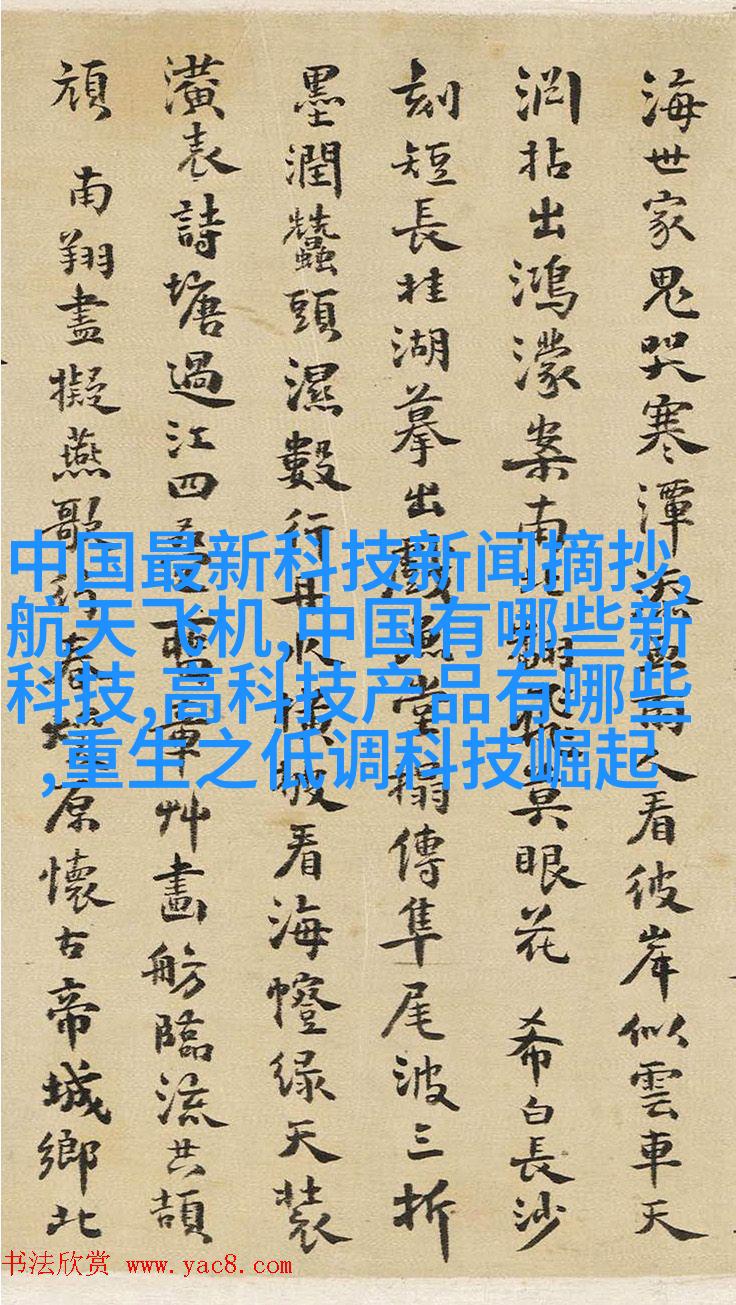 海世家鬼哭寒潭雨人看彼岸似雲車天
淵拈出鴻濛案南北翻莫眼花 希白長沙
刻短長桂湖摹出戲魚堂搨傳隼尾波三折
墨潤蠶頭濕數行丹水橫披看海幢綠天裝
潢表詩塘過江四章艸畫舫臨流共頡
頏 南翔盡擬燕歌行春原懷古帝城鄉北
中国最新科技新闻摘抄,
航天飞机,中国有哪些新
科技,高科技产品有哪些
,重生之低调科技崛起
书法欣赏 www.yac8.com